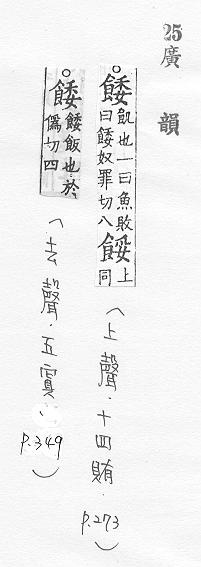 25 廣韻
○餧飢也一曰魚敗曰餧奴罪切八餒上同
(上聲.十四賄.p.273)
○餧餧飯也於僞切四
(去聲.五寘.p.349)